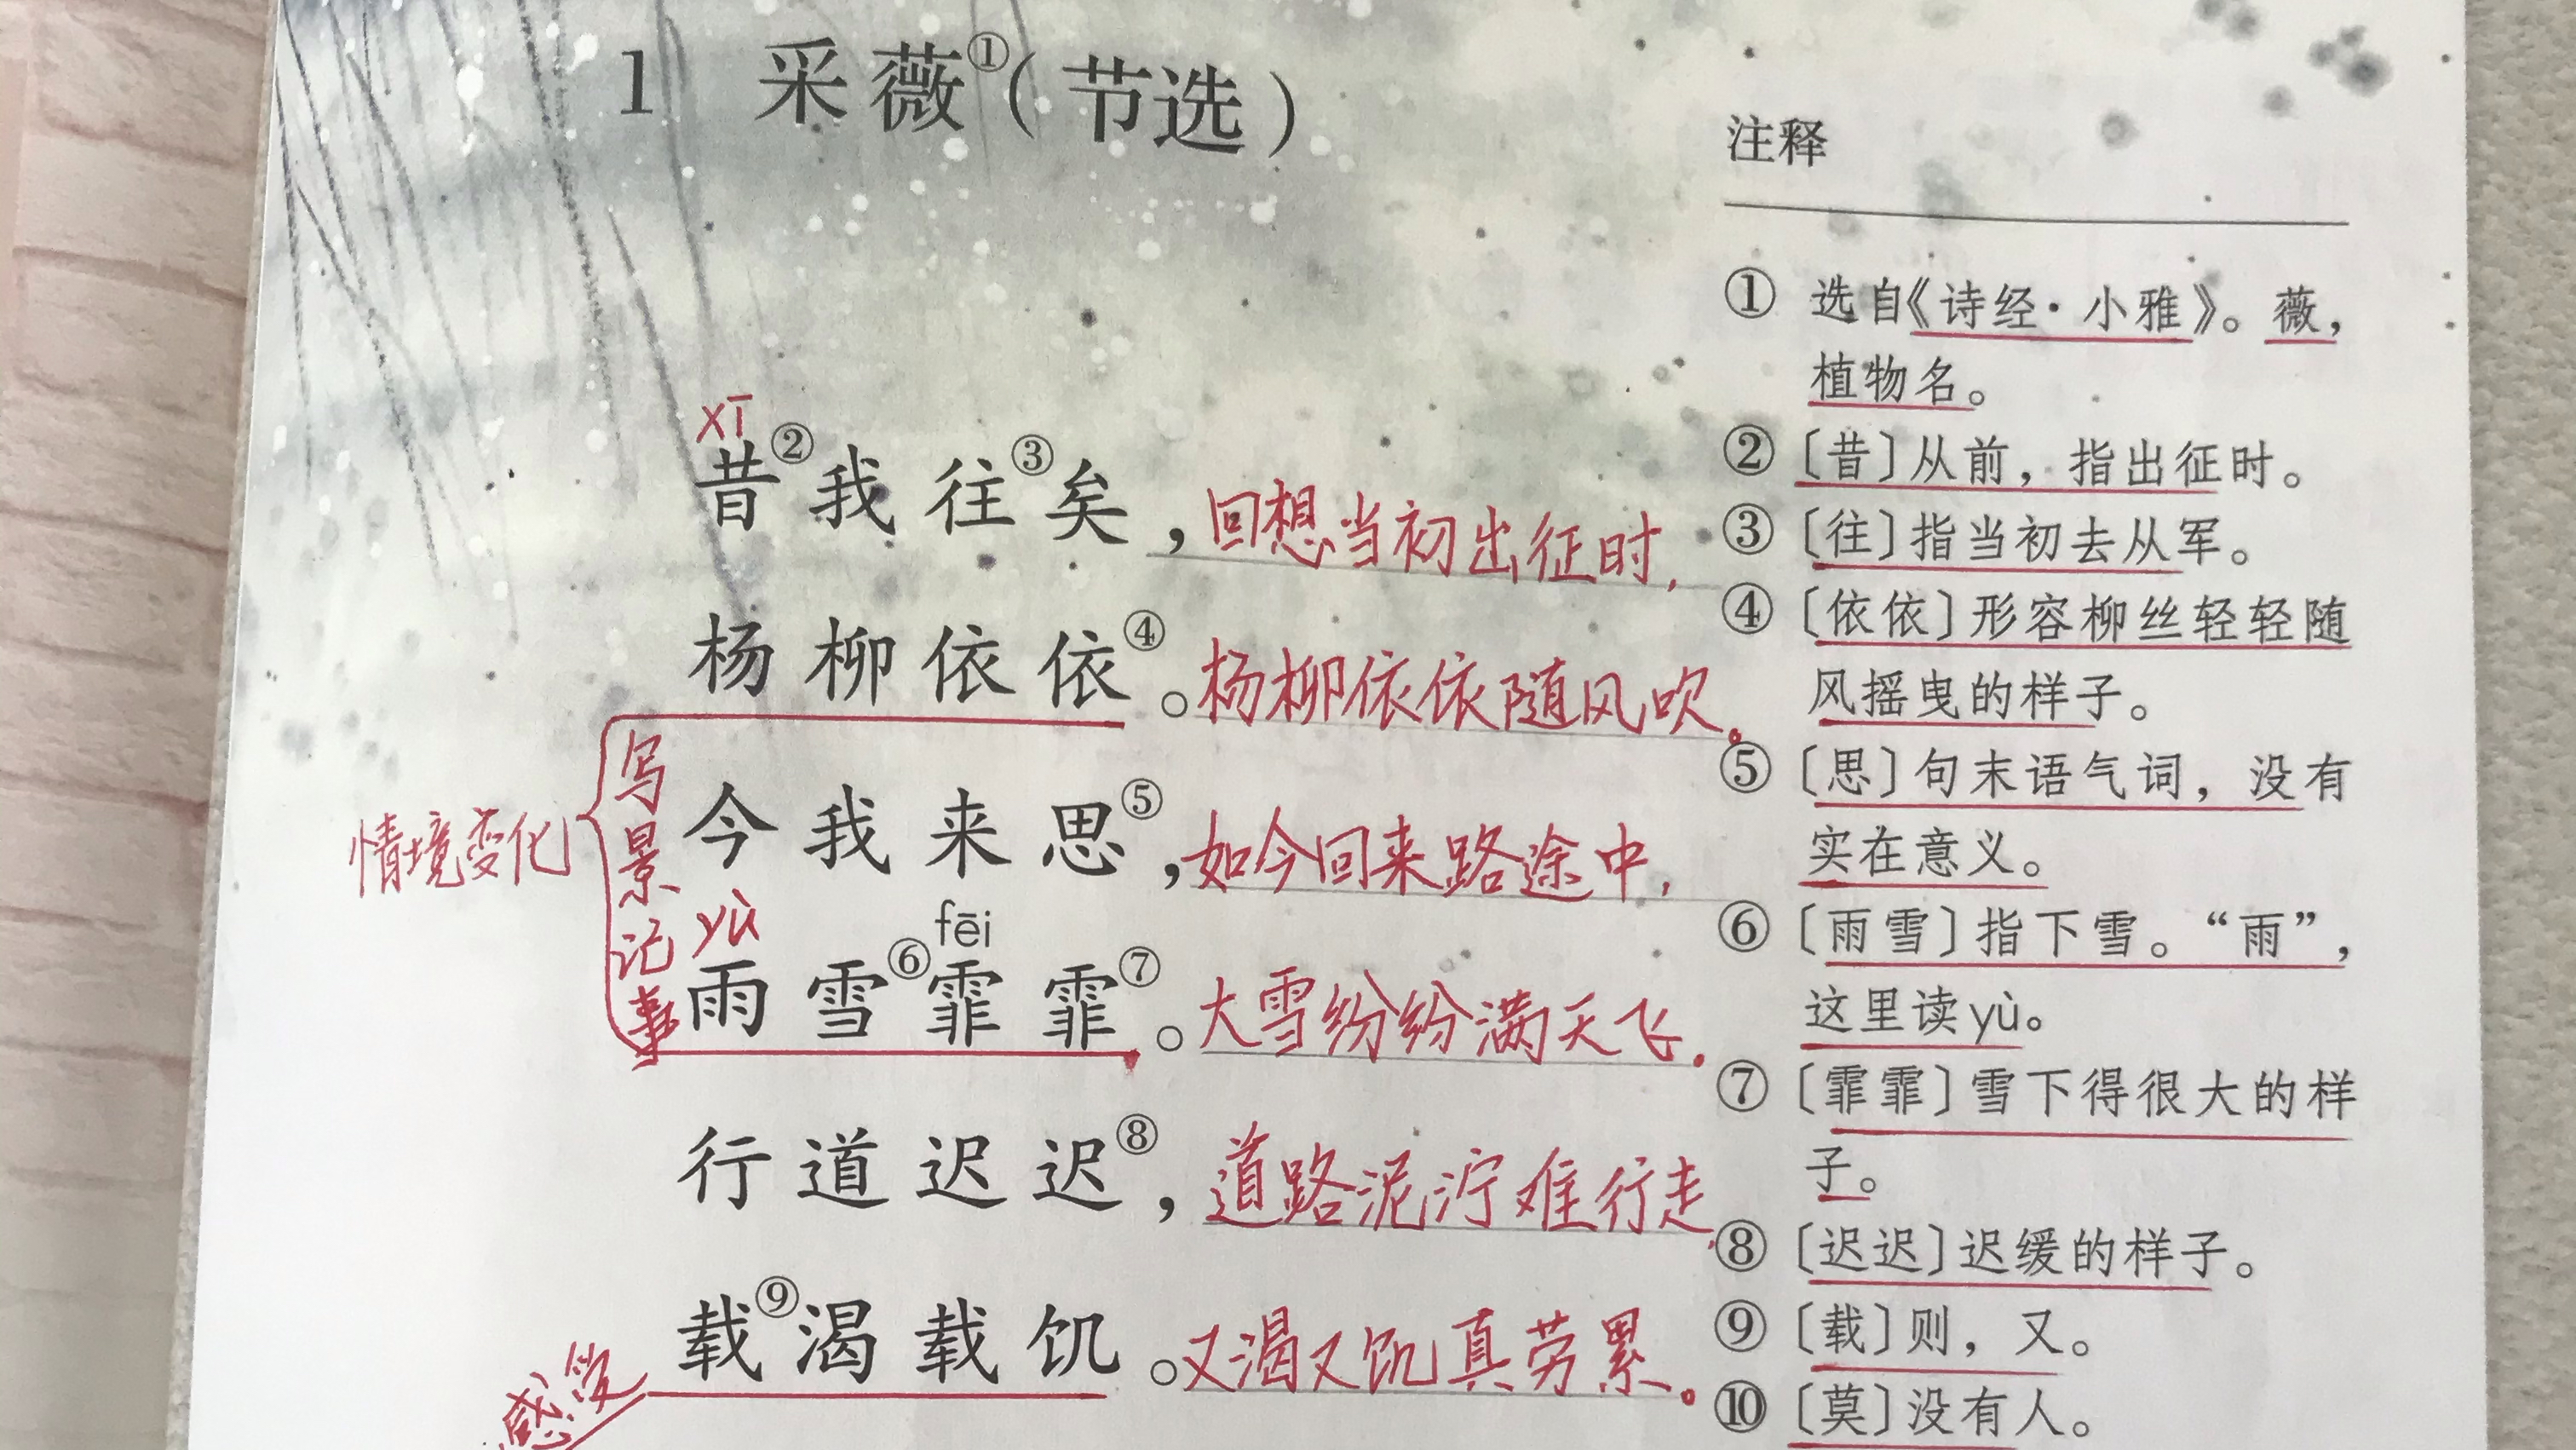 1 采薇①(节选)
xī
昔②我往③矣，回想当初出征时，
杨柳依依④。杨柳依依随风吹。
写景记事
情境变化
今我来思⑤，如今回来路途中，
yù fēi
雨雪⑥霏霏⑦。大雪纷纷满天飞。
行道迟迟⑧，道路泥泞难行走，
载⑨渴载饥。又渴又饥真劳累。
感受
注释
① 选自《诗经·小雅》。薇，
植物名。
② 〔昔〕从前，指出征时。
③ 〔往〕指当初去从军。
④ 〔依依〕形容柳丝轻轻随
风摇曳的样子。
⑤ 〔思〕句末语气词，没有
实在意义。
⑥ 〔雨雪〕指下雪。“雨”，
这里读yù。
⑦ 〔霏霏〕雪下得很大的样
子。
⑧ 〔迟迟〕迟缓的样子。
⑨ 〔载〕则，又。
⑩ 〔莫〕没有人。